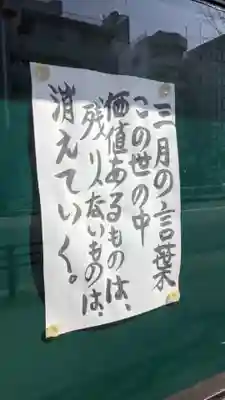 三月の言葉
この世の中
価値あるものは、
残り、ないものは、
消えていく。